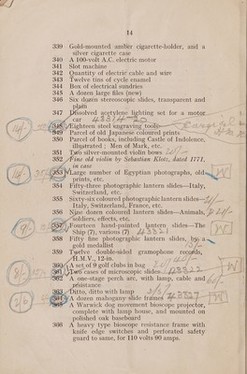 14
339 Gold-mounted amber cigarette-holder, and a
silver cigarette case
340 A 100-volt A.C. electric motor
341 Slot machine
342 Quantity of electric cable and wire
343 Twelve tins of cycle enamel
344 Box of electrical sundries
345 A dozen large files (new)
346 Six dozen stereoscopic slides, transparent and
plain
347 Dissolved acetylene lighting set for a motor
car
348 Eighteen steel engraving tools
349 Parcel of old Japanese coloured prints
350 Parcel of books, including Castle of Indolence,
illustrated; Men of Mark, etc.
351 Two silver-mounted violin bows
352 Fine old violin by Sebastian Klotz, dated 1771,
in case
353 Large number of Egyptian photographs, old
prints, etc.
354 Fifty-three photographic lantern slides—Italy,
Switzerland, etc.
355 Sixty-six coloured photographic lantern slides—
Italy, Switzerland, France, etc.
356 Nine dozen coloured lantern slides—Animals,
soldiers, effects, etc.
357 Fourteen hand-painted lantern slides—The
Ship (7), various (7)
358 Fifty fine photographic lantern slides, by a
gold medallist
359 Twelve double-sided gramophone records,
H.M.V., 12-in.
360 A set of 9 golf clubs in bag
361 Two cases of microscopic slides 43822
362 A one-stage perch arc, with lamp, cable and
resistance
363 Ditto, ditto with lamp
364 A dozen mahogany slide frames
365 A Warwick dog movement bioscope projector,
complete with lamp house, and mounted on
polished oak baseboard
366 A heavy type bioscope resistance frame with
knife edge switches and perforated safety
guard to same, for 110 volts 90 amps.